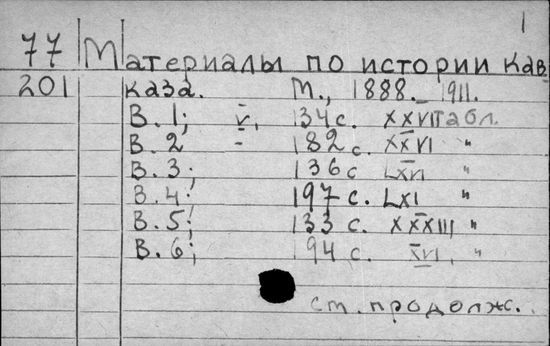 1
77 Материалы по истории Кав
201 каза. М., 1888 - 1911.
В. 1; V, 134 с. XXVI табл.
В. 2 - 182 с. XXVI "
В. 3; 136 с LXVI "
В. 4; 197 с. LXI "
В. 5; 133 с. XXXIII "
В. 6; 94 с. XVI, "
см. продолж.